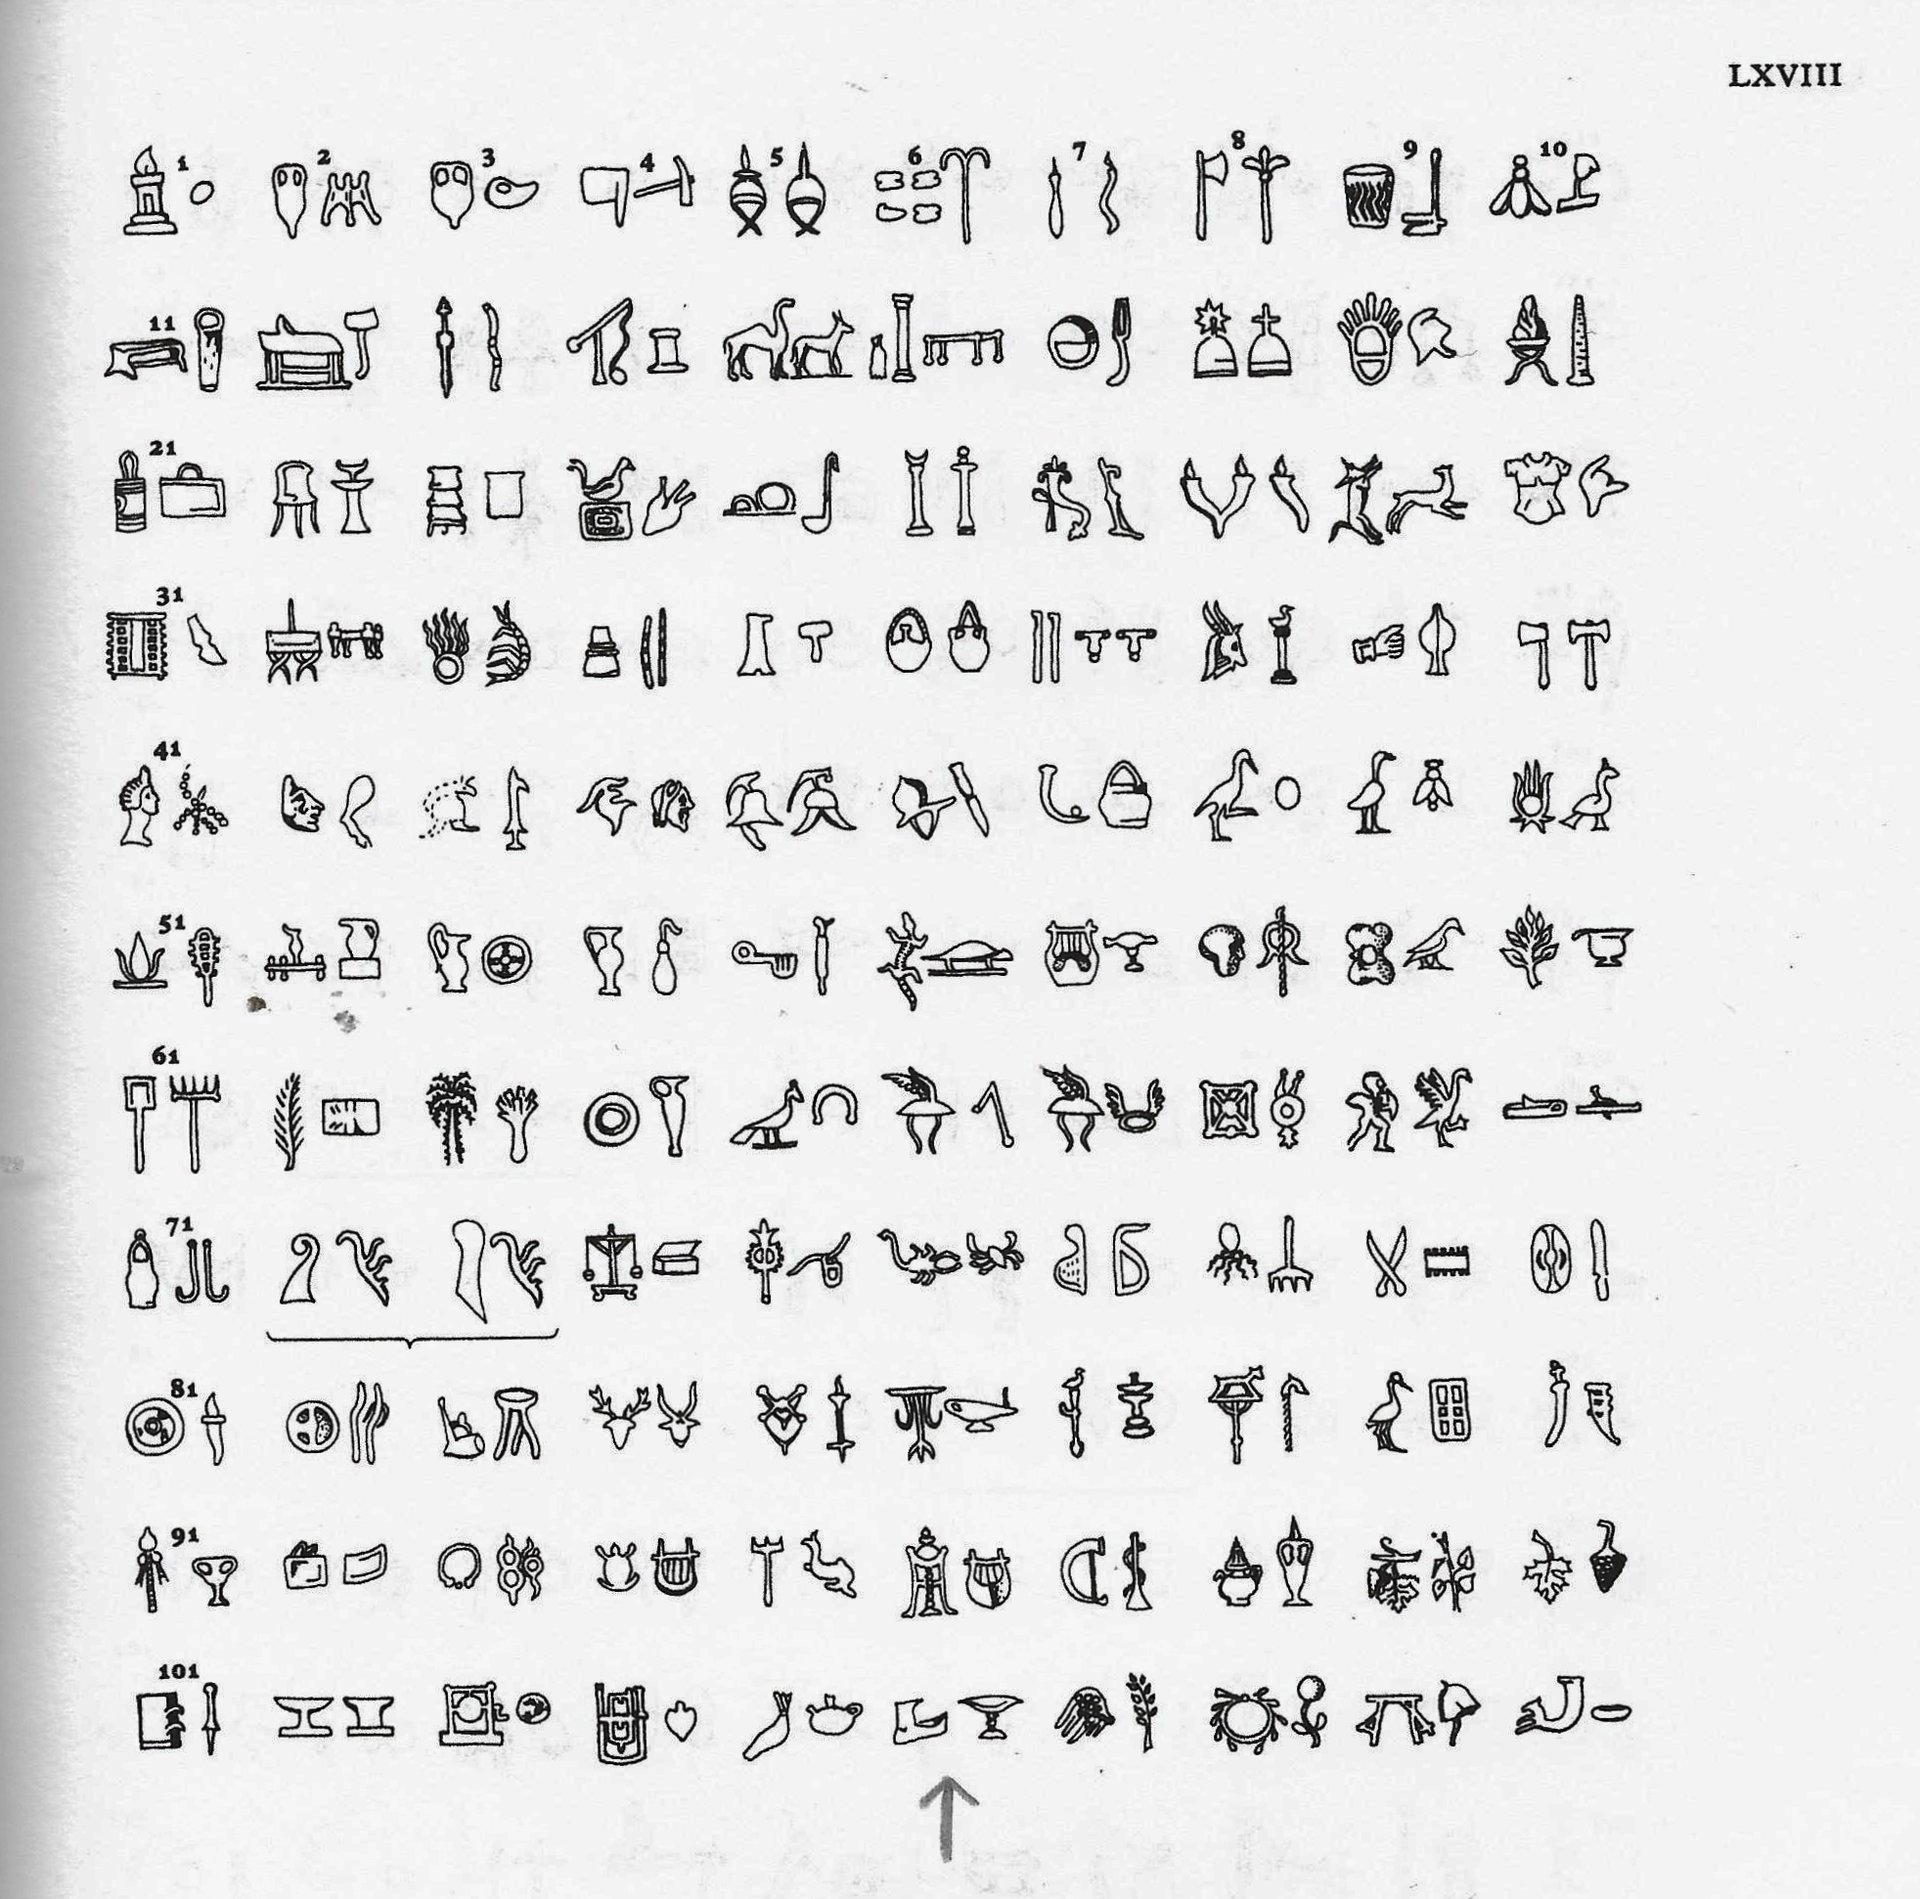 LXVIII
1 2 3 4 5 6 7 8 9 10
11
21
31
41
51
61
71
81
91
101